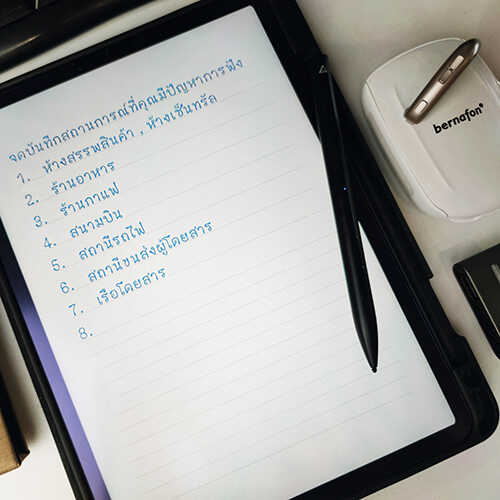 จดบันทึกสถานการณ์ที่คุณมีปัญหาการฟัง
1. ห้างสรรพสินค้า , ห้างเซ็นทรัล
2. ร้านอาหาร
3. ร้านกาแฟ
4. สนามบิน
5. สถานีรถไฟ
6. สถานีขนส่งผู้โดยสาร
7. เรือโดยสาร
8.
bernafon®